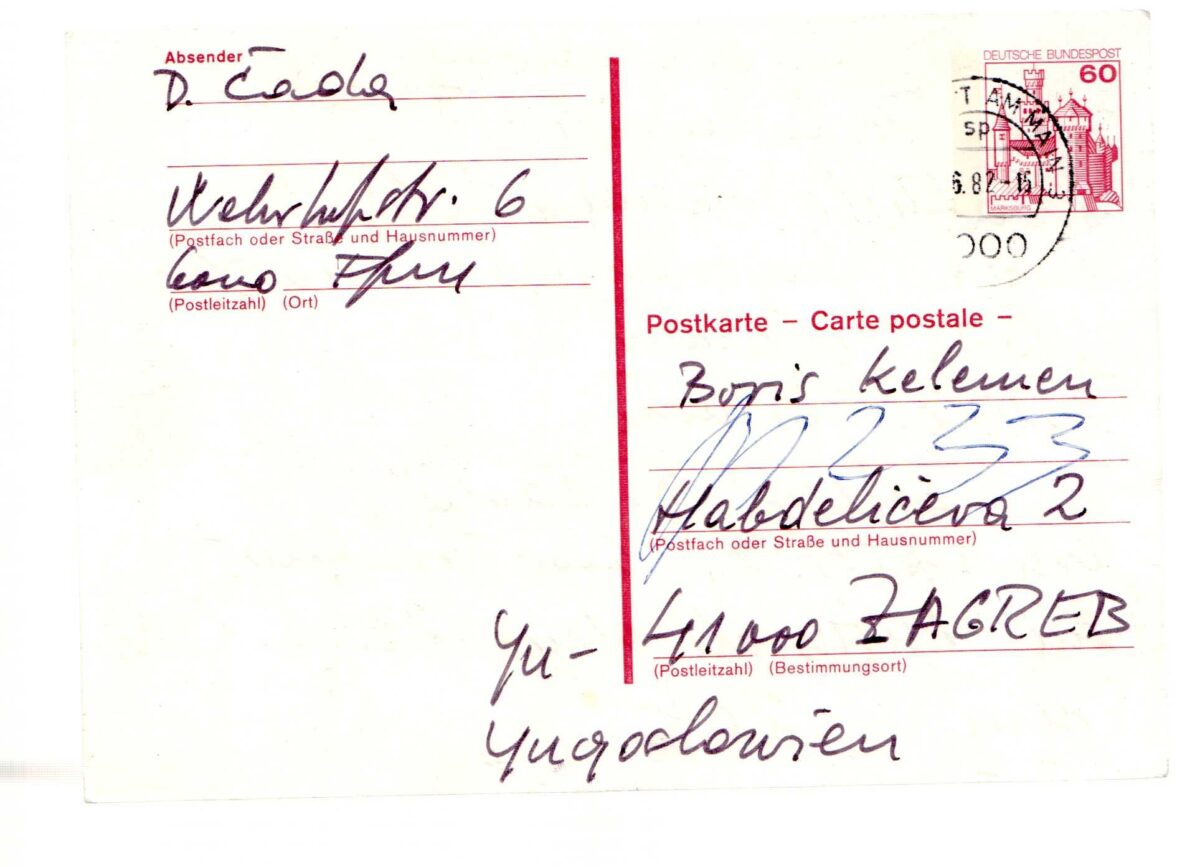 Absender
D. Čada
6
(Postfach oder Straße und Hausnummer)
6000 Ffm
(Postleitzahl) (Ort)
DEUTSCHE BUNDESPOST
60
T AM MAIN 3
sp
6.82-15
000
MARKSBURG
Postkarte – Carte postale –
Boris Kelemen
233
Habdelićeva 2
(Postfach oder Straße und Hausnummer)
Yu- 41000 ZAGREB
(Postleitzahl) (Bestimmungsort)
Yugoslawien